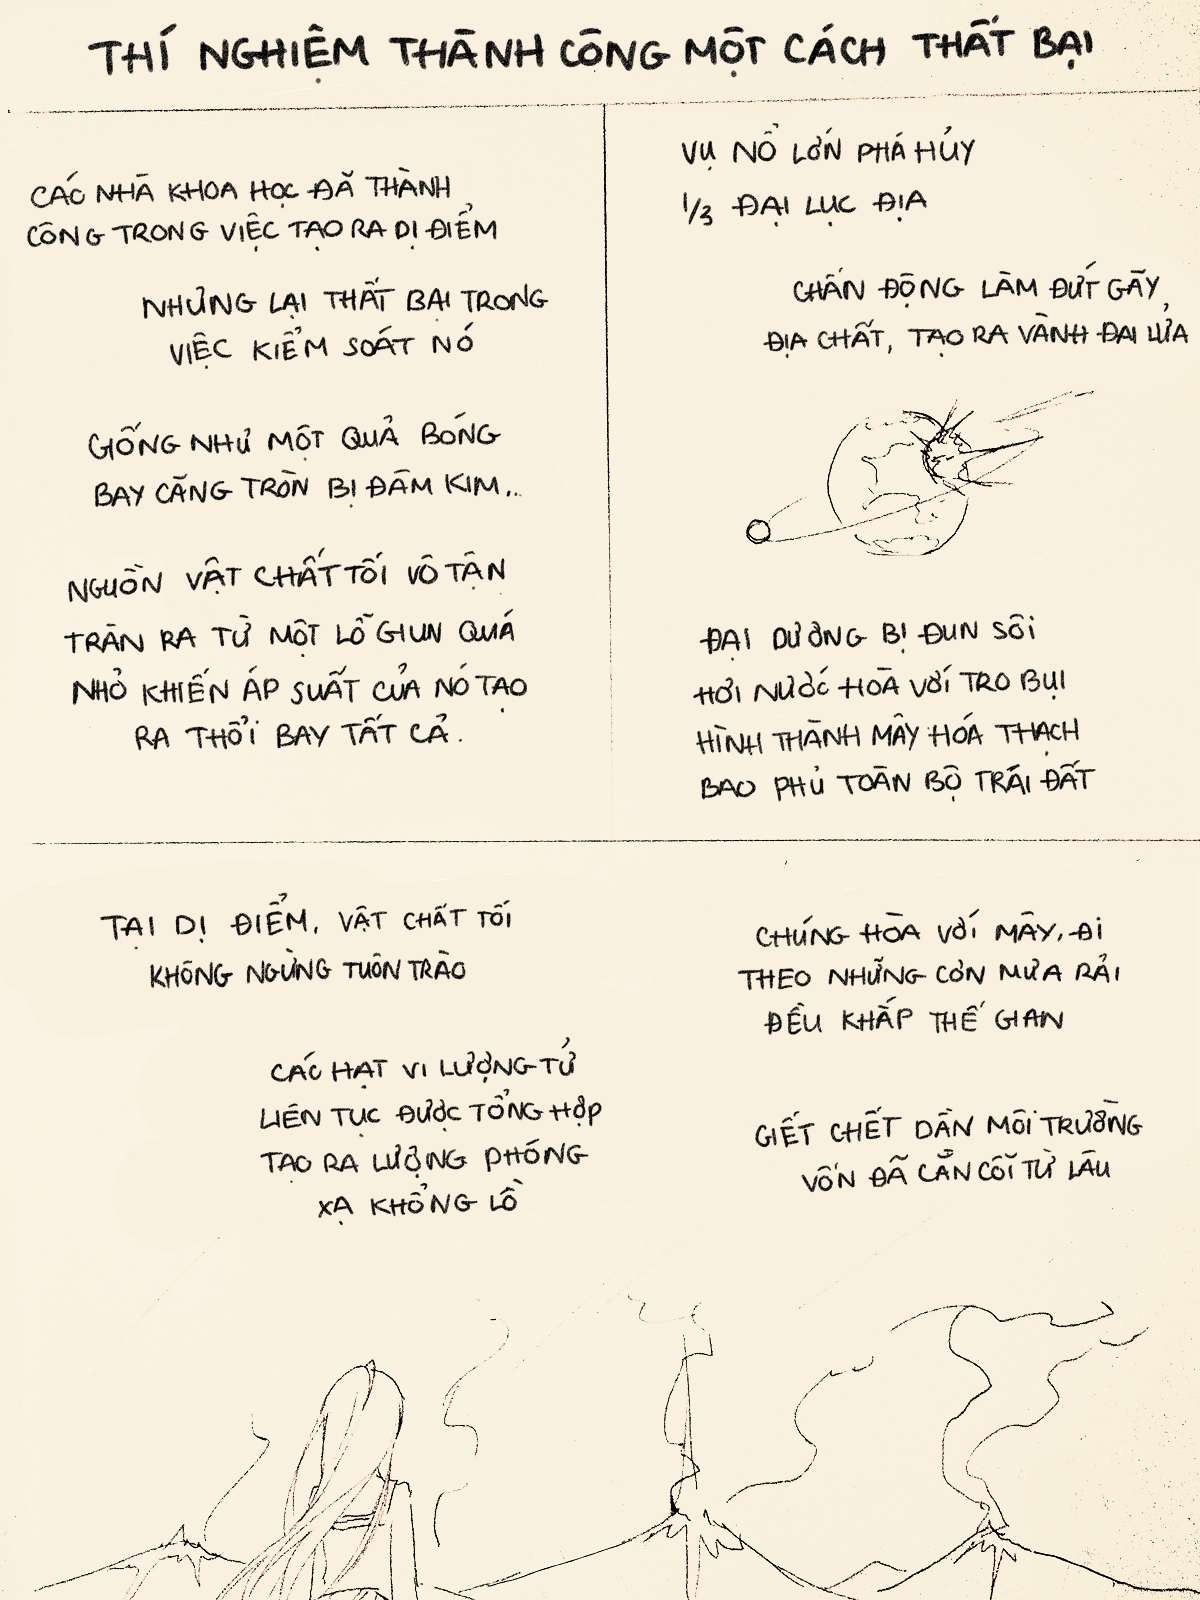 THÍ NGHIỆM THÀNH CÔNG MỘT CÁCH THẤT BẠI
CÁC NHÀ KHOA HỌC ĐÃ THÀNH
CÔNG TRONG VIỆC TẠO RA DỊ ĐIỂM
NHƯNG LẠI THẤT BẠI TRONG
VIỆC KIỂM SOÁT NÓ
GIỐNG NHƯ MỘT QUẢ BÓNG
BAY CĂNG TRÒN BỊ ĐÂM KIM...
NGUỒN VẬT CHẤT TỐI VÔ TẬN
TRÀN RA TỪ MỘT LỖ GIUN QUÁ
NHỎ KHIẾN ÁP SUẤT CỦA NÓ TẠO
RA THỔI BAY TẤT CẢ.
VỤ NỔ LỚN PHÁ HỦY
1/3 ĐẠI LỤC ĐỊA
CHẤN ĐỘNG LÀM ĐỨT GÃY
ĐỊA CHẤT, TẠO RA VÀNH ĐAI LỬA
ĐẠI DƯƠNG BỊ ĐUN SÔI
HƠI NƯỚC HOÀ VỚI TRO BỤI
HÌNH THÀNH MÂY HÓA THẠCH
BAO PHỦ TOÀN BỘ TRÁI ĐẤT
TẠI DỊ ĐIỂM, VẬT CHẤT TỐI
KHÔNG NGỪNG TUÔN TRÀO
CÁC HẠT VI LƯỢNG TỬ
LIÊN TỤC ĐƯỢC TỔNG HỢP
TẠO RA LƯỢNG PHÓNG
XẠ KHỔNG LỒ
CHÚNG HÒA VỚI MÂY, ĐI
THEO NHỮNG CƠN MƯA RẢI
ĐỀU KHẮP THẾ GIAN
GIẾT CHẾT DẦN MÔI TRƯỜNG
VỐN ĐÃ CẰN CỖI TỪ LÂU